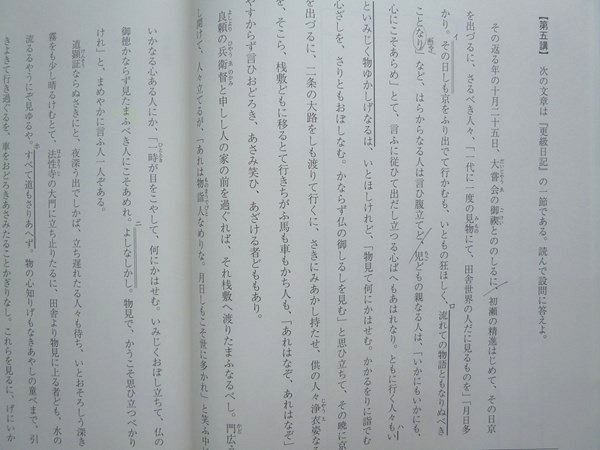 【第五講】　次の文章は『更級日記』の一節である。読んで設問に答えよ。
その返る年の十月二十五日、大嘗会の御禊とののしるに、初瀬の精進はじめて、その日京
を出づるに、さるべき人々、「一代に一度の見物にて、田舎世界の人だに見るものを」「月日多
かり。その日しも京をふり出でて行かむも、いともの狂ほしく、流れての物語ともなりぬべき
ことなり」など、はらからなる人は言ひ腹立てど、児どもの親なる人は、「いかにもいかにも、
心にこそあらめ」とて、言ふに従ひて出だし立つる心ばへもあはれなり。ともに行く人々もい
といみじく物ゆかしげなるは、いとほしけれど、「物見て何にかはせむ。かかるをりに詣でむ
心ざしを、さりともおぼしなむ。かならず仏の御しるしを見む」と思ひ立ちて、その暁に京
を出づるに、二条の大路をしも渡りて行くに、さきにみあかし持たせ、供の人々浄衣姿なる
を、そこら、桟敷どもに移るとて行きちがふ馬も車もかち人も、「あれはなぞ、あれはなぞ」
やすからず言ひおどろき、あさみ笑ひ、あざける者どももあり。
良頼の兵衛督と申しし人の家の前を過ぐれば、それ桟敷へ渡りたまふなるべし。門広う
し開けて、人々立てるが、「あれは物詣人なめりな。月日しもこそ世に多かれ」と笑ふ中
いかなる心ある人にか、「一時が目をこやして、何にかはせむ。いみじくおぼし立ちて、仏の
御徳かならず見たまふべき人にこそあめれ。よしなしかし。物見で、かうこそ思ひ立つべかり
けれ」と、まめやかに言ふ人一人ぞある。
道顕証ならぬさきにと、夜深う出でしかば、立ち遅れたる人々も待ち、いとおそろしう深き
霧をも少し晴るけむとて、法性寺の大門に立ち止りたるに、田舎より物見に上る者ども、水の
流るるやうにぞ見ゆるや。すべて道もさりあへず、物の心知りげもなきあやしの童べまで、引
きよきて行き過ぐるを、車をおどろきあさみたることかぎりなし。これらを見るに、げにいか